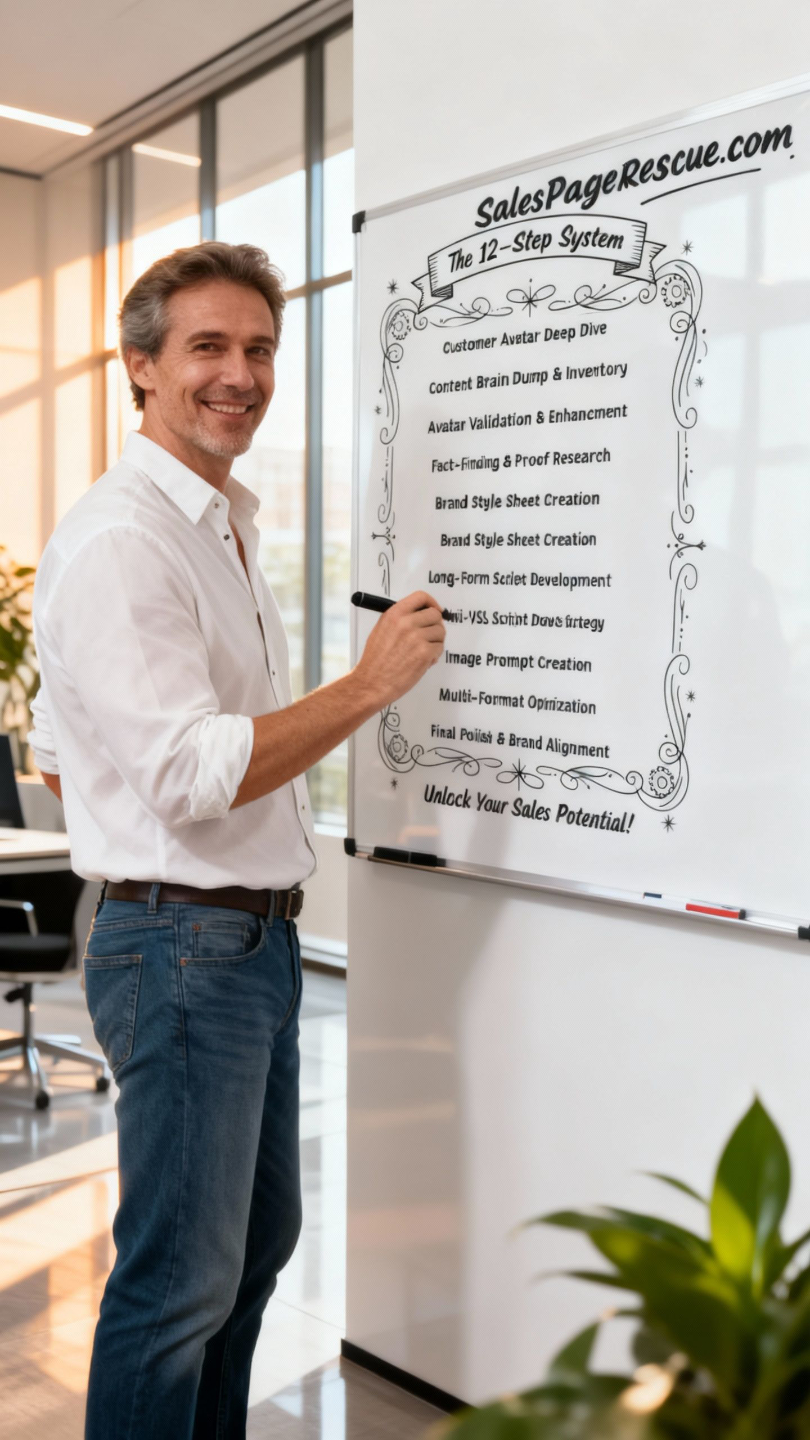 SalesPageRescue.com
The 12-Step System
Customer Avatar Deep Dive
Content Brain Dump & Inventory
Avatar Validation & Enhancement
Fact-Finding & Proof Research
Brand Style Sheet Creation
Brand Style Sheet Creation
Long-Form Script Development
Image Prompt Creation
Multi-Format Optimization
Final Polish & Brand Alignment
Unlock Your Sales Potential!